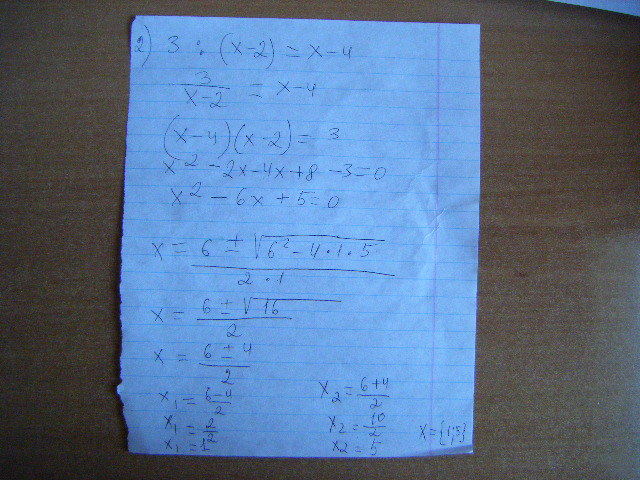 2) 3 : (x-2) = x-4
3/(x-2) = x-4
(x-4)(x-2) = 3
x² - 2x - 4x + 8 - 3 = 0
x² - 6x + 5 = 0
x = (6 ± √(6² - 4·1·5))/(2·1)
x = (6 ± √16)/2
x = (6 ± 4)/2
x₁ = (6-4)/2
x₁ = 2/2
x₁ = 1
x₂ = (6+4)/2
x₂ = 10/2
x₂ = 5
x = {1;5}